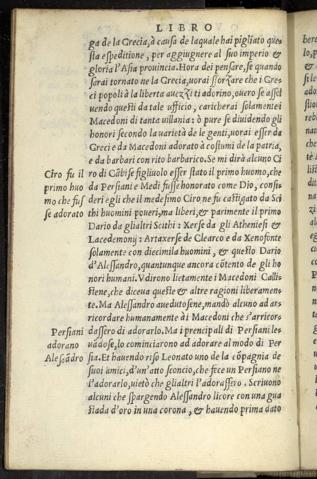 LIBRO
ga de la Grecia, à causa de laquale hai pigliato que-
sta espeditione, per aggiugnere al suo imperio &
gloria l'Asia prouincia. Hora dei pensare, se quando
sarai tornato ne la Grecia, vorai sforzare che i Gre-
ci popoli à la liberta auezzi ti adorino, ouero se assol
uendo questi da tale ufficio, caricherai solamente i
Macedoni di tanta uillania: ò pure se diuidendo gli
honori secondo la varietà de le genti, vorai esser da
Greci e da Macedoni adorato à costumi de la patria,
e da barbari con rito barbarico. Se mi dirà alcuno Ci
Ciro fu il
ro di Cãbise figliuolo esser stato il primo huomo, che
primo huo
da Persiani e Medi fusse honorato come Dio, consi-
mo che fus
deri egli che il medesimo Ciro ne fu castigato da Sci
se adorato
thi huomini poueri, ma liberi, & parimente il primo
Dario da glialtri Scithi: Xerse da gli Atheniesi &
Lacedemonij: Artaxerse de Clearco e da Xenofonte
solamente con diecimila huomini, & questo Dario
d'Alessandro, quantunque ancora cõtento de gli ho
nori humani. Vdirono lietamente i Macedoni Calli-
stene, che diceua queste & altre ragioni liberamen-
te. Ma Alessandro auedutosene, mandò alcuno ad ars
ricordare humanamente ài Macedoni che s'arricors
Persiani
dassero di adorarlo. Ma i principali di Persiani le-
adorano
uãdose, lo cominciarono ad adorare al modo di Per
Alessãdro
sia. Et hauendo riso Leonato uno de la cõpagnia de
suoi amici, d'un'atto sconcio, che fece un Persiano ne
l'adorarlo, uietò che glialtri l'adorassero. Scriuono
alcuni che spargendo Alessandro licore con una gua
stada d'oro in una corona, & hauendo prima dato